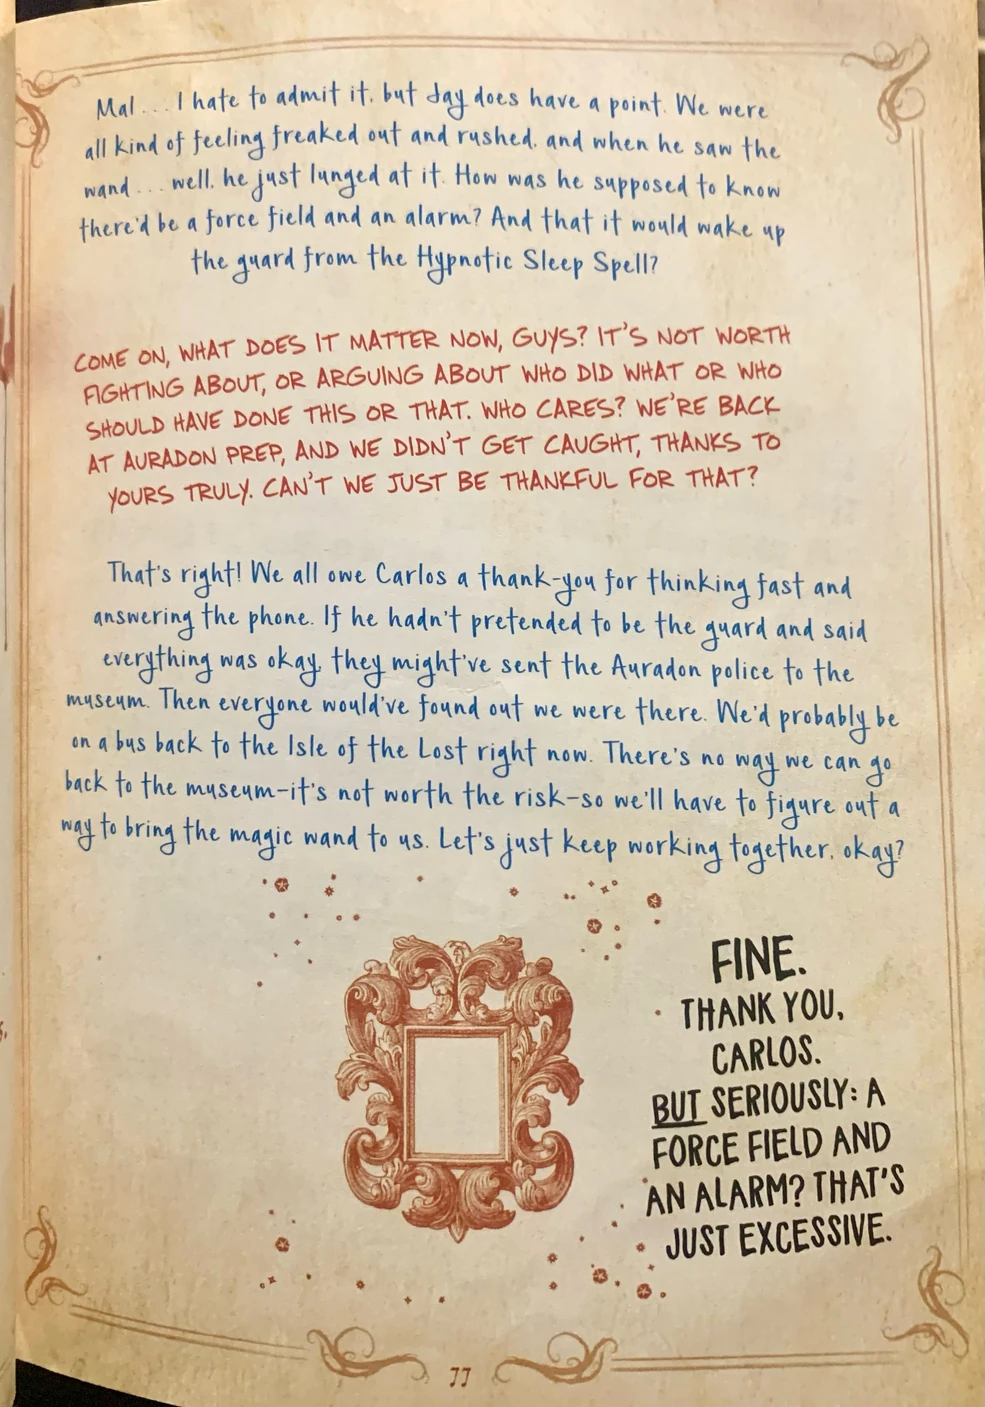 Mal . . . I hate to admit it, but Jay does have a point. We were
all kind of feeling freaked out and rushed, and when he saw the
wand . . . well, he just lunged at it. How was he supposed to know
there'd be a force field and an alarm? And that it would wake up
the guard from the Hypnotic Sleep Spell?
COME ON, WHAT DOES IT MATTER NOW, GUYS? IT'S NOT WORTH
FIGHTING ABOUT, OR ARGUING ABOUT WHO DID WHAT OR WHO
SHOULD HAVE DONE THIS OR THAT. WHO CARES? WE'RE BACK
AT AURADON PREP, AND WE DIDN'T GET CAUGHT, THANKS TO
YOURS TRULY. CAN'T WE JUST BE THANKFUL FOR THAT?
That's right! We all owe Carlos a thank-you for thinking fast and
answering the phone. If he hadn't pretended to be the guard and said
everything was okay, they might've sent the Auradon police to the
museum. Then everyone would've found out we were there. We'd probably be
on a bus back to the Isle of the Lost right now. There's no way we can go
back to the museum—it's not worth the risk—so we'll have to figure out a
way to bring the magic wand to us. Let's just keep working together, okay?
FINE.
THANK YOU,
CARLOS.
BUT SERIOUSLY: A
FORCE FIELD AND
AN ALARM? THAT'S
JUST EXCESSIVE.
77